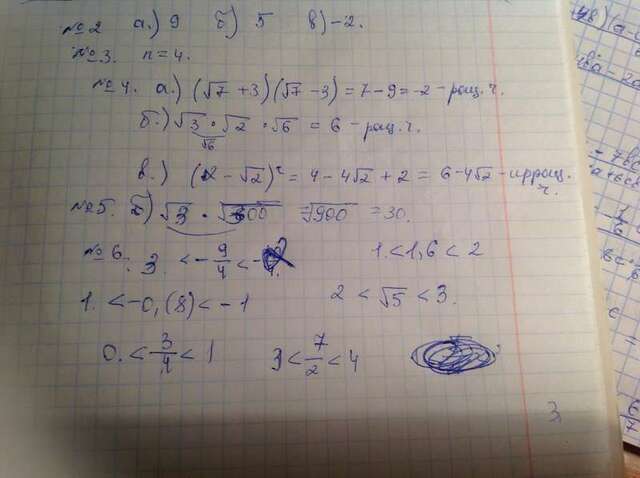 №2 а.) 9 б) 5 в) -2.
№3. n = 4.
№4. а.) (√7 + 3)(√7 - 3) = 7 - 9 = -2 - рац. ч.
б.) √3 · √2 · √6 = 6 - рац. ч.
√6
в.) (2 - √2)² = 4 - 4√2 + 2 = 6 - 4√2 - иррац. ч.
№5. б) √3 · √300 = √900 = 30.
№6. 3. < -9/4 <
1. < 1,6 < 2
1. < -0,(8) < -1
2 < √5 < 3.
0. < 3/4 < 1
3 < 7/2 < 4
3